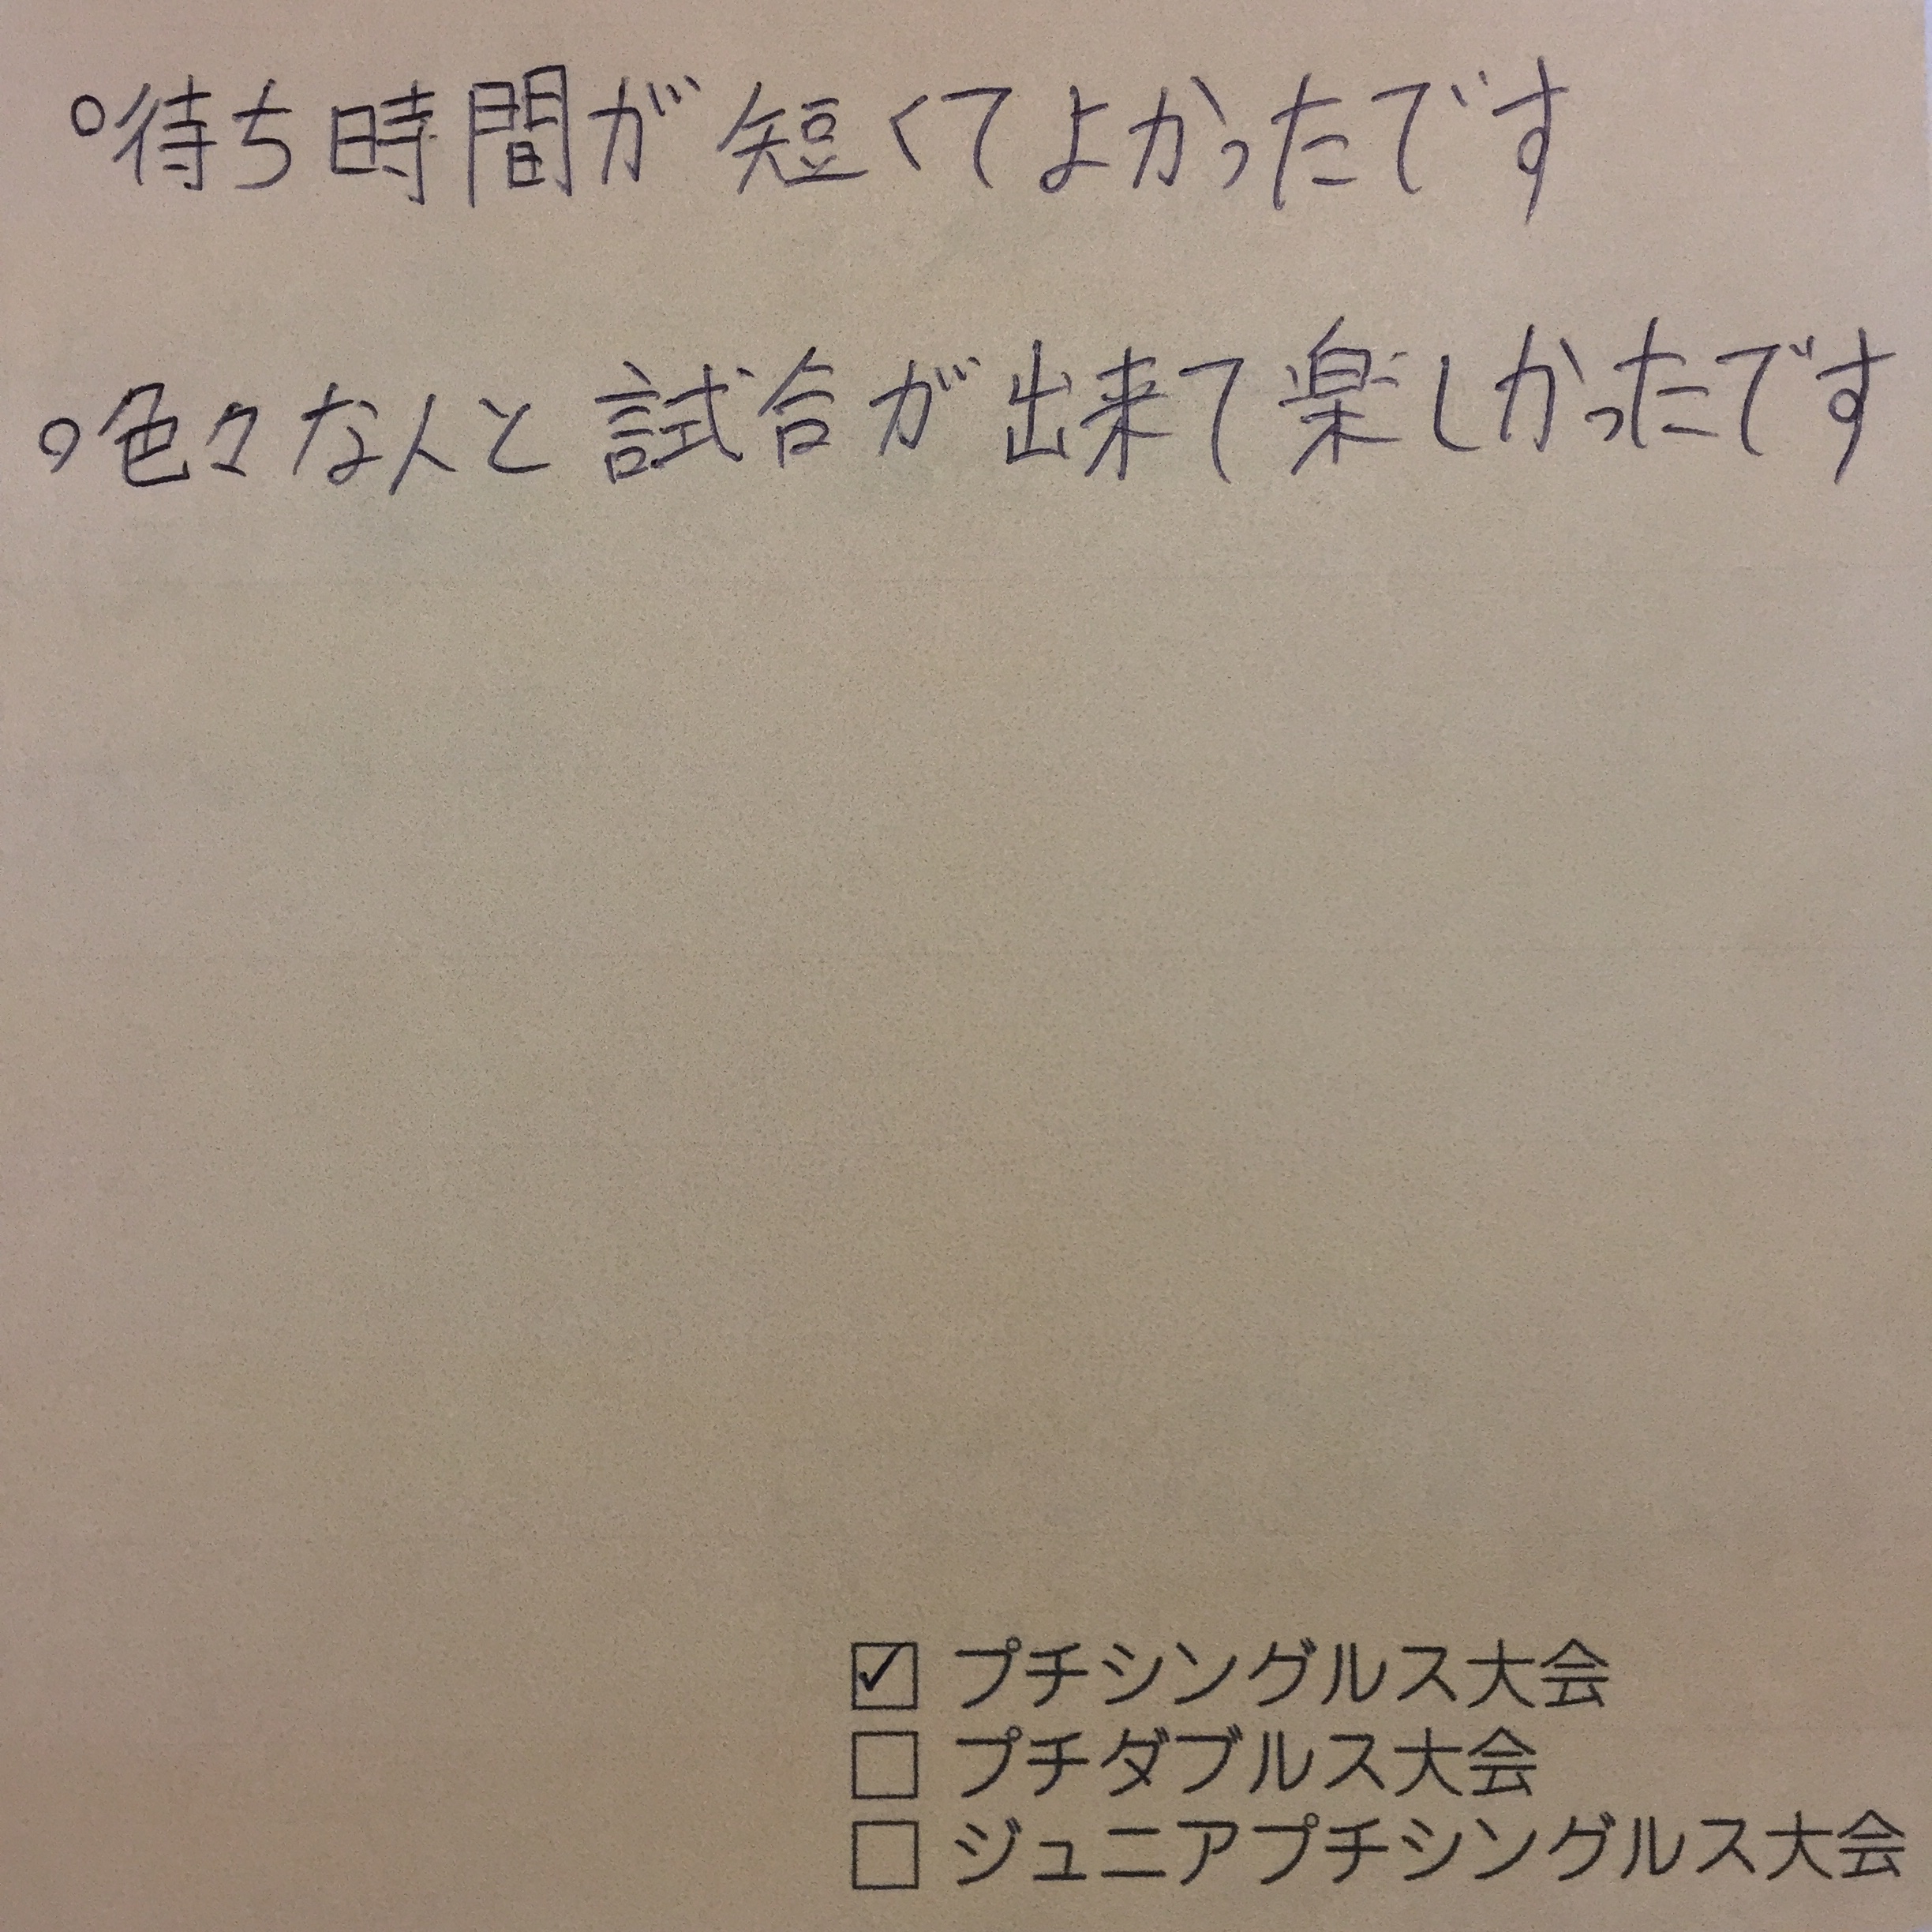 ○待ち時間が短くてよかったです
○色々な人と試合が出来て楽しかったです
☑ プチシングルス大会
☐ プチダブルス大会
☐ ジュニアプチシングルス大会